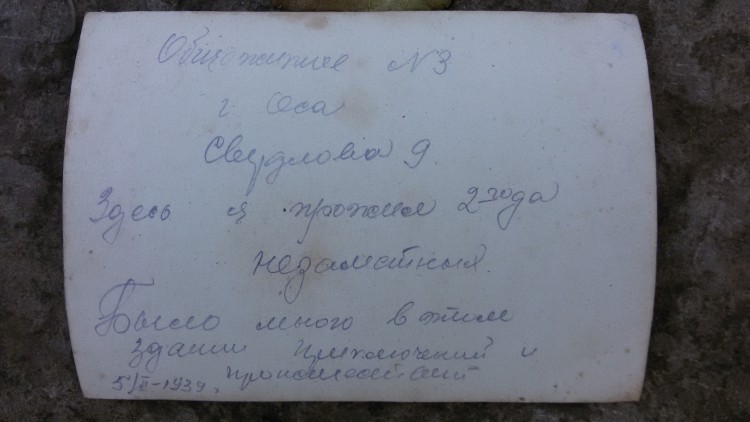 Общежитие N3
г Оса
Свердлова 9.
Здесь я прожил 2 года
незаметныя.
Было много в этим
здании приключений и
происшествий
5/II-1939.